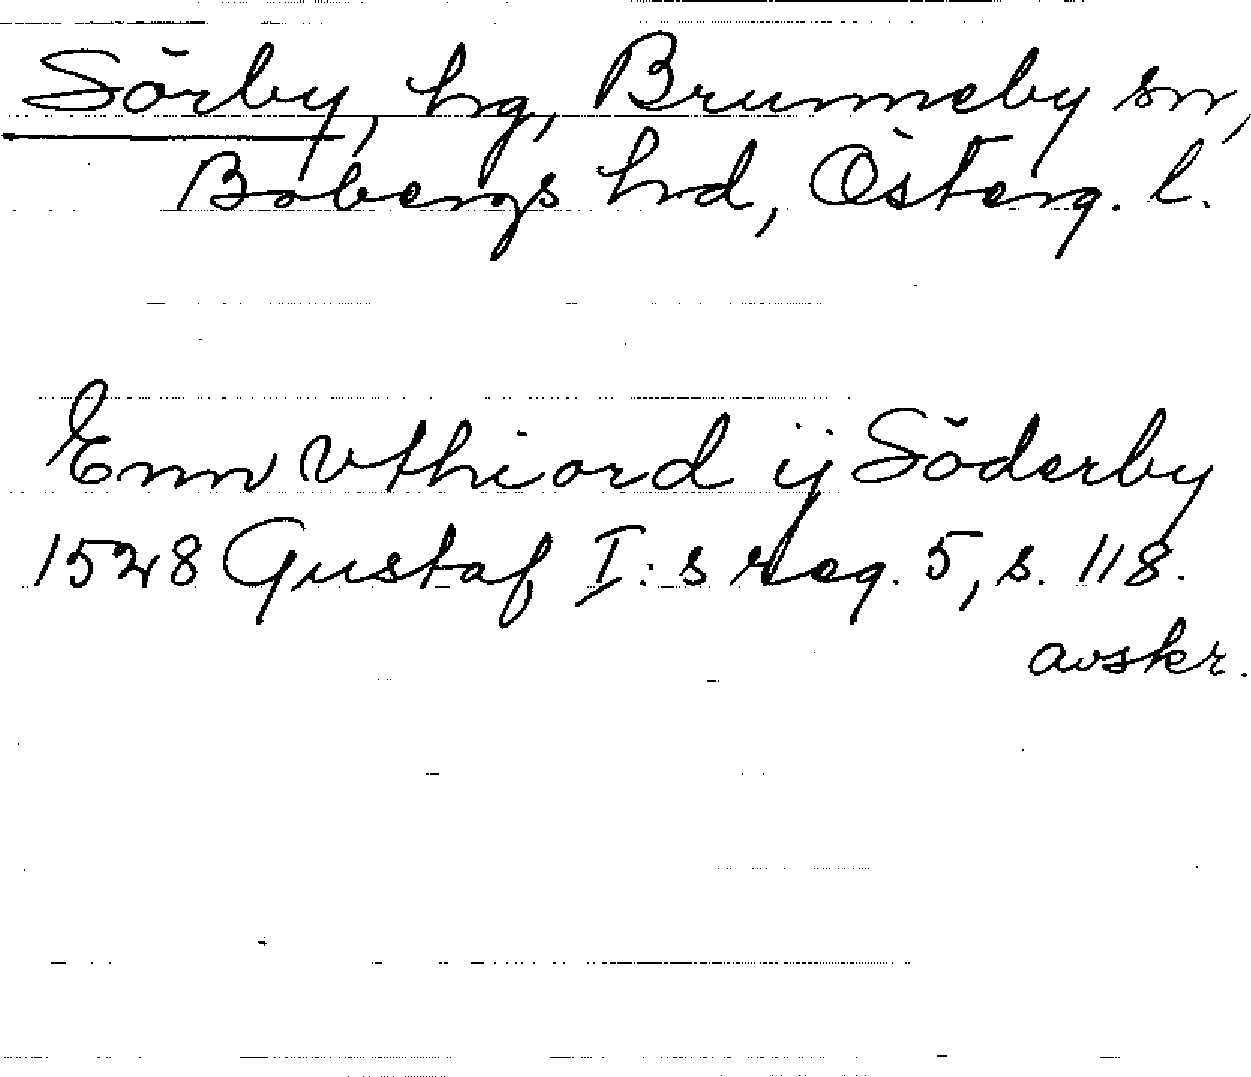 Sörby, hg, Brunneby sn,
Bobergs hd, Österg. l.
Enn Vthiord ij Söderby
1528 Gustaf I:s reg. 5, s. 118.
avskr.